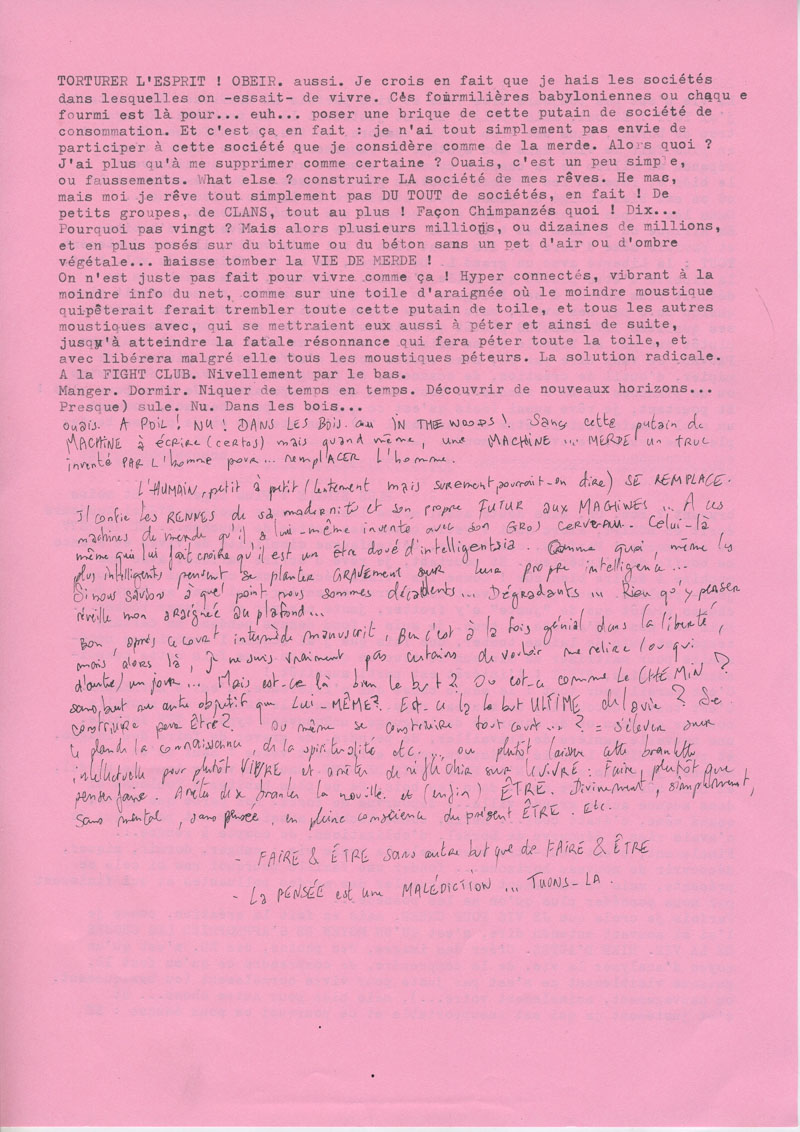 TORTURER L'ESPRIT ! OBEIR. aussi. Je crois en fait que je hais les sociétés
dans lesquelles on -essait- de vivre. Cés foürmilières babyloniennes ou chaqu e
fourmi est là pour... euh... poser une brique de cette putain de société de
consommation. Et c'est ça en fait : je n'ai tout simplement pas envie de
participer à cette société que je considère comme de la merde. Alors quoi ?
J'ai plus qu'à me supprimer comme certaine ? Ouais, c'est un peu simple,
ou faussements. What else ? construire LA société de mes rêves. He mac,
mais moi je rêve tout simplement pas DU TOUT de sociétés, en fait ! De
petits groupes, de CLANS, tout au plus ! Façon Chimpanzés quoi ! Dix...
Pourquoi pas vingt ? Mais alors plusieurs millions, ou dizaines de millions,
et en plus posés sur du bitume ou du béton sans un pet d'air ou d'ombre
végétale... laisse tomber la VIE DE MERDE !
On n'est juste pas fait pour vivre comme ça ! Hyper connectés, vibrant à la
moindre info du net, comme sur une toile d'araignée où le moindre moustique
quipèterait ferait trembler toute cette putain de toile, et tous les autres
moustiques avec, qui se mettraient eux aussi à péter et ainsi de suite,
jusqu'à atteindre la fatale résonnance qui fera péter toute la toile, et
avec libérera malgré elle tous les moustiques péteurs. La solution radicale.
A la FIGHT CLUB. Nivellement par le bas.
Manger. Dormir. Niquer de temps en temps. Découvrir de nouveaux horizons...
Presque) sule. Nu. Dans les bois...
ouais. A POIL ! NU ! DANS LES BOIS. ou IN THE WOODS !. Sans cette putain de
MACHINE à écrire (certes) mais quand même, une MACHINE ... MERDE un truc
inventé PAR L'homme pour... remplACER L'homme.
L'HUMAIN, petit à petit (lentement mais surement pourrait-on dire) SE REMPLACE.
Il confie les RENNES de sa modernité et son propre FUTUR aux MACHINES ... A ces
machines de merde qu'il a lui-même inventé avec son GROS CERVEAU. Celui-là
même qui lui fait croire qu'il est un être doué d'intelligentsia. Comme quoi, même les
plus intelligents peuvent se planter GRAVEMENT sur leur propre intelligence...
Si nous savions à quel point nous sommes décadents... Dégradants ... Rien qu'y penser
réveille mon araignée au plafond...
Bon, après ce court intermède manuscrit, Ben c'est à la fois génial dans la liberté,
mais alors là, je ne suis vraiment pas certains de vouloir me relire (ou qui
d'autre) un jour... Mais est-ce là bien le but ? Ou est-ce comme le CHEMIN ?
sans but ou autre objectif que LUI-MÊME ?. Est-ce là le but ULTIME de la vie ? Se
construire pour Être ? Ou même se construire tout court ... ? = S'élever sur
le plan de la connaissance, de la spiritualité etc... ou plutôt laisser cette branlette
intellectuelle pour plutôt VIVRE et arrêter de réfléchir sur VIVRE : Faire, plutôt que
penser faire. Arrêter de se branler la nouille. et (enfin) ÊTRE. Divinement, simplement,
sans mental, sans pensée, en pleine conscience du présent ÊTRE. Etc.
- FAIRE & ÊTRE sans autre but que de FAIRE & ÊTRE
- La PENSÉE est une MALÉDICTION ... TUONS-LA.